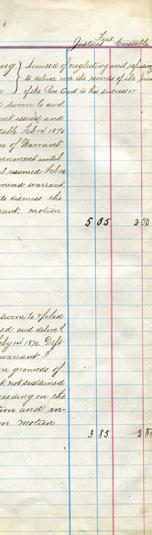 Fees
Justices Constable
Accused of neglecting and refusing
to deliver over the records of the
of the Peace Court to his successor
t sworn to and
issued and
table Feb 14 1870
n of Warrant
until
resumed Feb 16
warrant
to dismiss the
rant, motion
5 05 2 50
sworn to & filed
ed and deliver'd
14 1870 Deft
warrant
n grounds of
t not sustained
ceeding on the
tion and in-
on motion
3 85 2 5